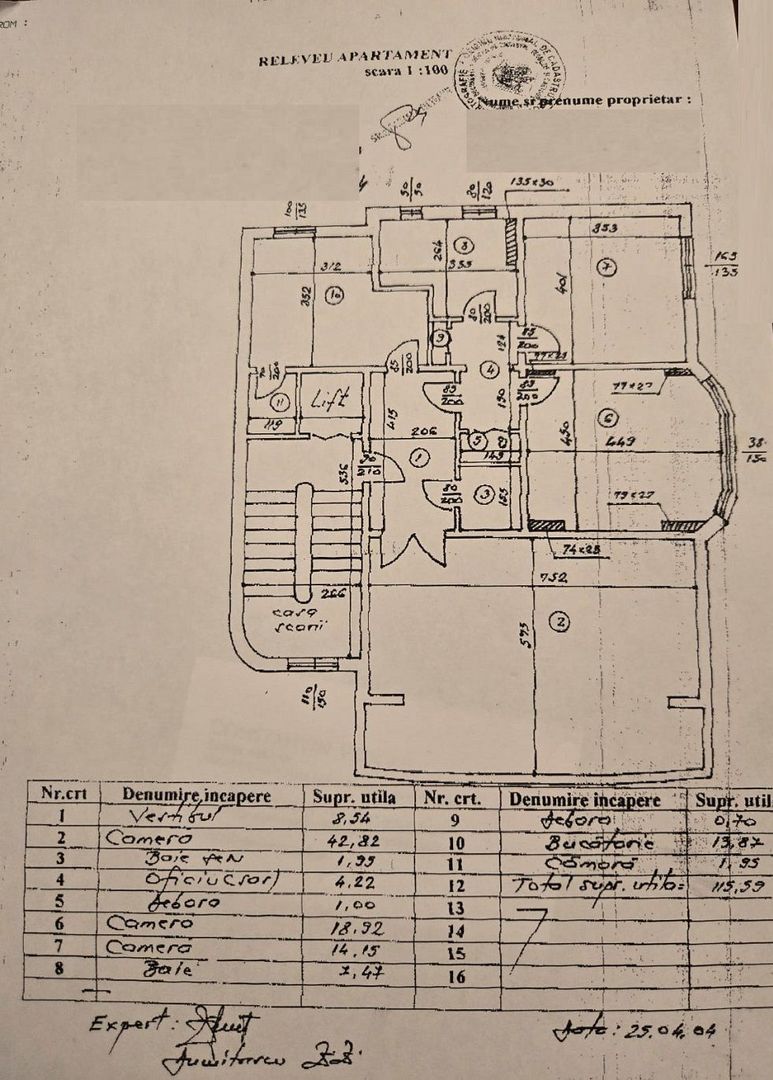 ROM :
RELEVEU APARTAMENT
scara 1 :100
Nume si prenume proprietar :
135x30
50
50
80
120
100
135
8
264
355
353
7
401
165
135
312
352
10
80
200
9
124
85
200
77x25
77x27
85
200
70
200
11
Lift
119
415
85
200
4
190
85
200
6
450
449
38
150
206
1
536
90
210
5
149
80
200
3
155
79x27
74x25
752
266
casa
scarii
595
2
110
150
Nr.crt Denumire incapere Supr. utila Nr. crt. Denumire incapere Supr. util
1 Vestibul 8,54 9 debara 0,70
2 Camera 42,82 10 Bucatarie 13,87
3 Baie 1,95 11 Camara 1,95
4 Oficiu(sas) 4,22 12 Total supr. utila= 115,59
5 debara 1,00 13
6 Camera 18,92 14
7 Camera 14,15 15
8 Baie 7,47 16
Expert:
Dumitrascu
Data: 25.04.04